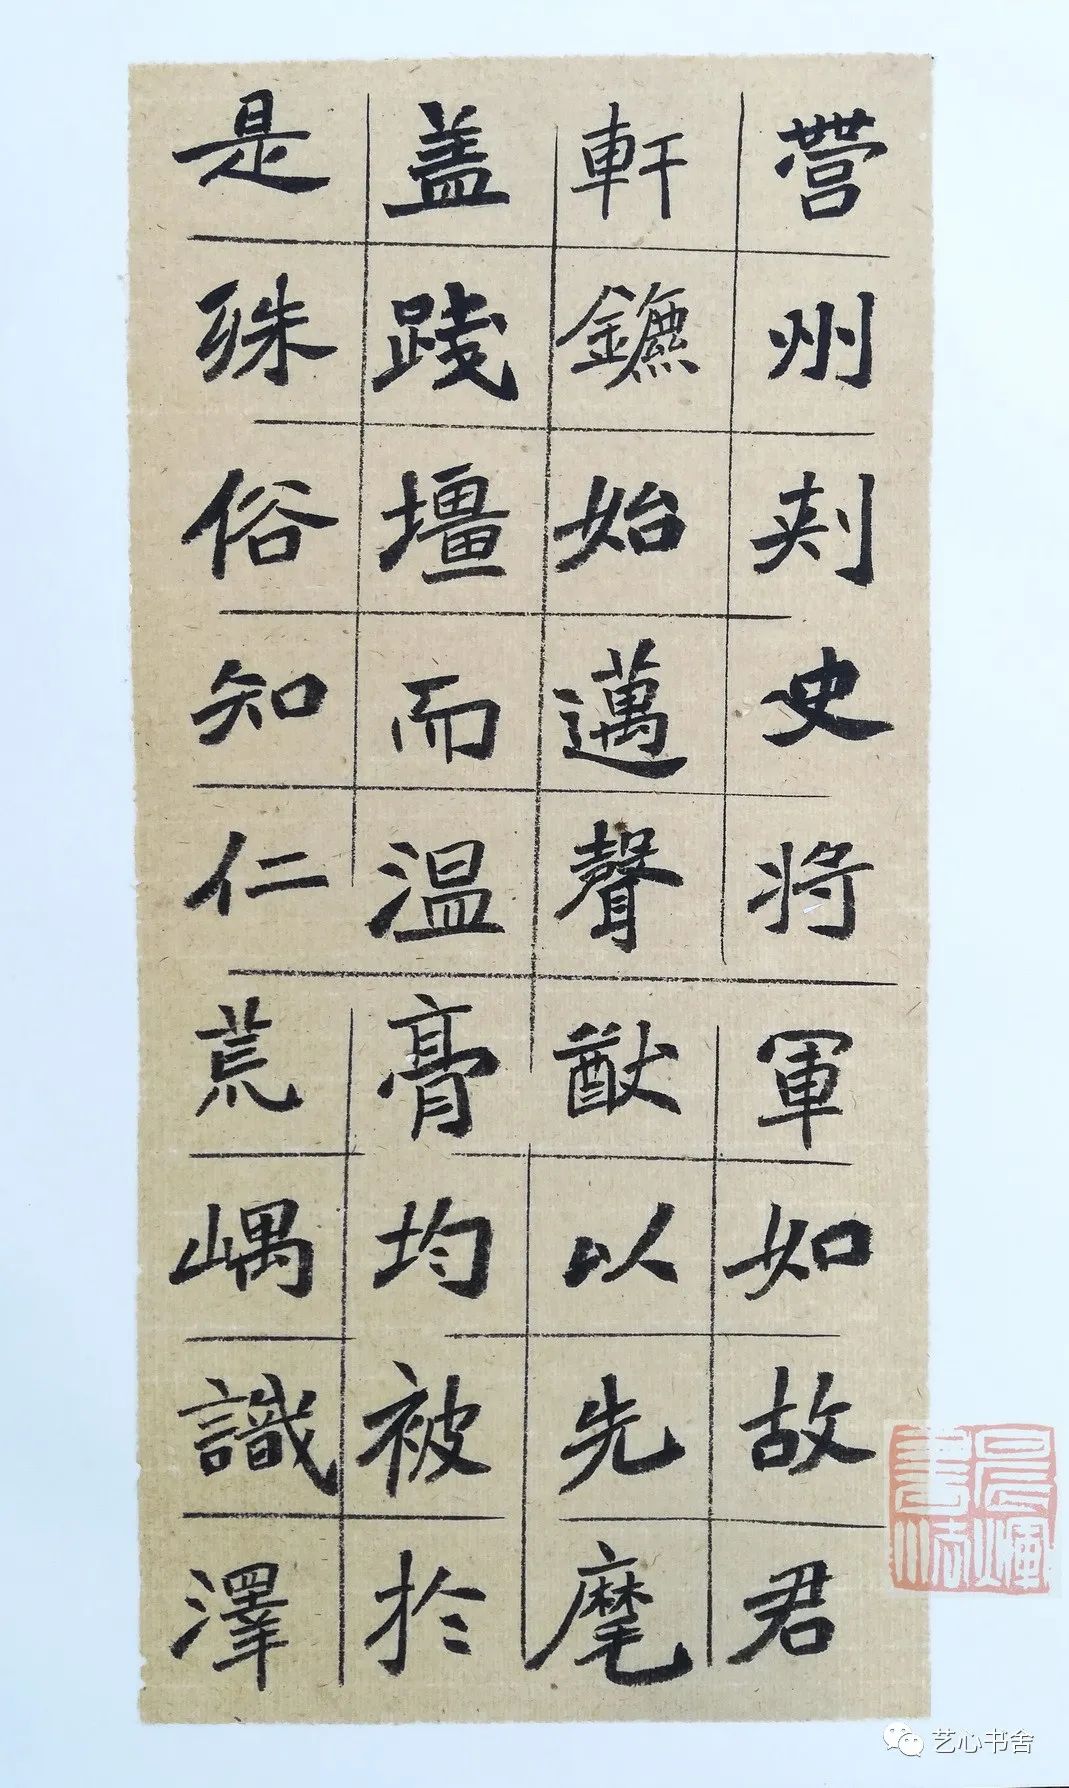 營州刾史将軍如故君
軒鑣始邁聲猷以先麾
盖踐壃而温膏均被於
是殊俗知仁荒嵎識澤
艺心书舍